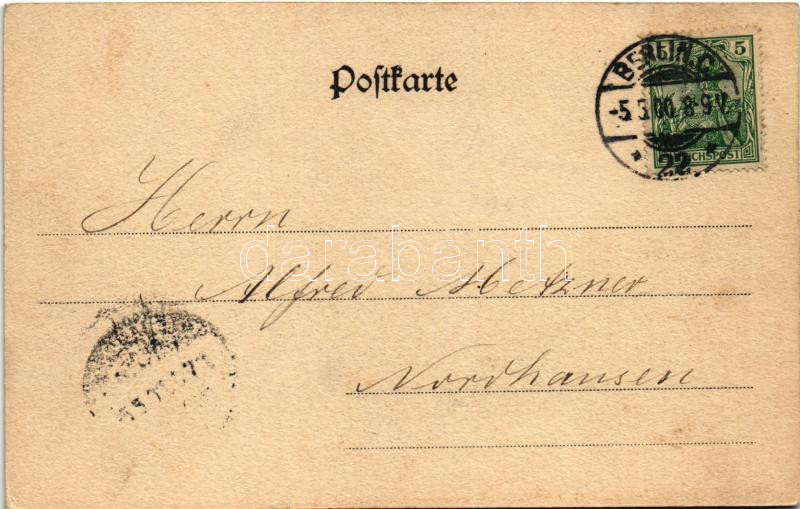 Postkarte
5
BERLIN.C.
-5.3.00.8-9V.
* 22. *
REICHSPOST
Herrn
Alfred Metzner
Nordhausen
darabanth